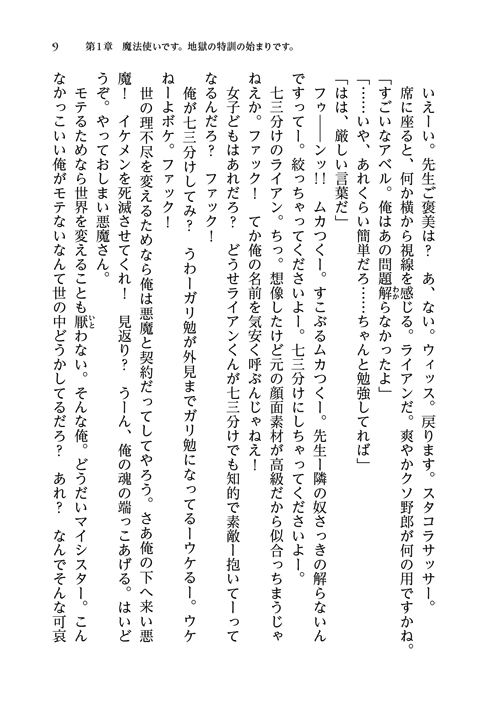 9　第1章　魔法使いです。地獄の特訓の始まりです。
いえーい。先生ご褒美は？　あ、ない。ウィッス。戻ります。スタコラサッサー。
席に座ると、何か横から視線を感じる。ライアンだ。爽やかクソ野郎が何の用ですかね。
「すごいなアベル。俺はあの問題解らなかったよ」
「……いや、あれくらい簡単だろ……ちゃんと勉強してれば」
「はは、厳しい言葉だ」
フゥ――ンッ!!　ムカつくー。すこぶるムカつくー。先生ー隣の奴さっきの解らないん
ですってー。絞っちゃってくださいよー。七三分けにしちゃってくださいよー。
七三分けのライアン。ちっ。想像したけど元の顔面素材が高級だから似合っちまうじゃ
ねえか。ファック！　てか俺の名前を気安く呼ぶんじゃねえ！
女子どもはあれだろ？　どうせライアンくんが七三分けでも知的で素敵ー抱いてーって
なるんだろ？　ファック！
俺が七三分けしてみ？　うわーガリ勉が外見までガリ勉になってるーウケるー。ウケ
ねーよボケ。ファック！
世の理不尽を変えるためなら俺は悪魔と契約だってしてやろう。さあ俺の下へ来い悪
魔！　イケメンを死滅させてくれ！　見返り？　うーん、俺の魂の端っこあげる。はいど
うぞ。やっておしまい悪魔さん。
モテるためなら世界を変えることも厭わない。そんな俺。どうだいマイシスター。こん
なかっこいい俺がモテないなんて世の中どうかしてるだろ？　あれ？　なんでそんな可哀